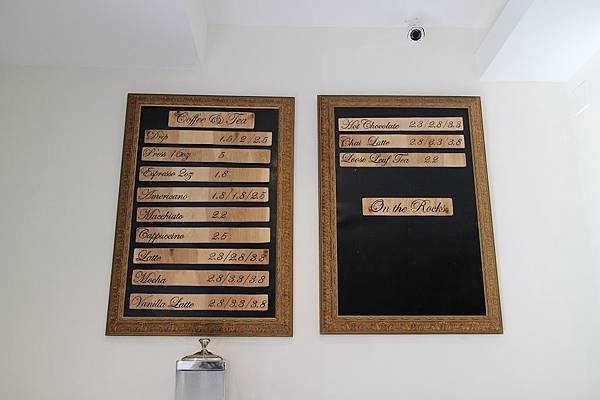 Coffee & Tea
Drip 1.5/2/2.5
Press 16oz 5
Espresso 2oz 1.8
Americano 1.3/1.8/2.5
Macchiato 2.2
Cappuccino 2.5
Latte 2.3/2.8/3.3
Mocha 2.8/3.3/3.8
Vanilla Latte 2.8/3.3/3.8
Hot Chocolate 2.3/2.8/3.3
Chai Latte 2.8/3.3/3.8
Loose Leaf Tea 2.2
On the Rocks